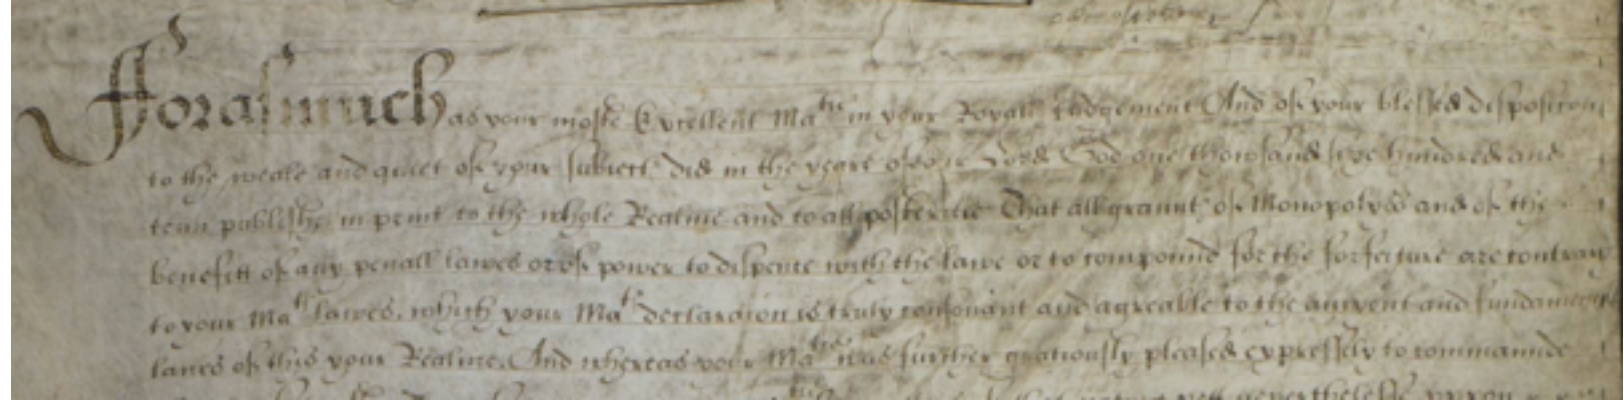 Fforasmuch as your moste Excellent Ma^tie in your Royall Judgement And of your blessed disposicon
to the weale and quiet of your subiect did in the yeare of our Lord God one thowsand sixe hundred and
tenn publishe in print to the whole Realme and to all posteritie That all graunt of Monopolyes and of the
benefitt of any penall lawes or of power to dispence with the lawe or to compound for the forfeiture are contrary
to your Ma^ts lawes, which your Ma^ts declaracion is truly consonant and agreable to the auncient and fundamentall
lawes of this your Realme. And whereas your Ma^tie was further gratiously pleased expressely to commaunde
neverthelesse uppon